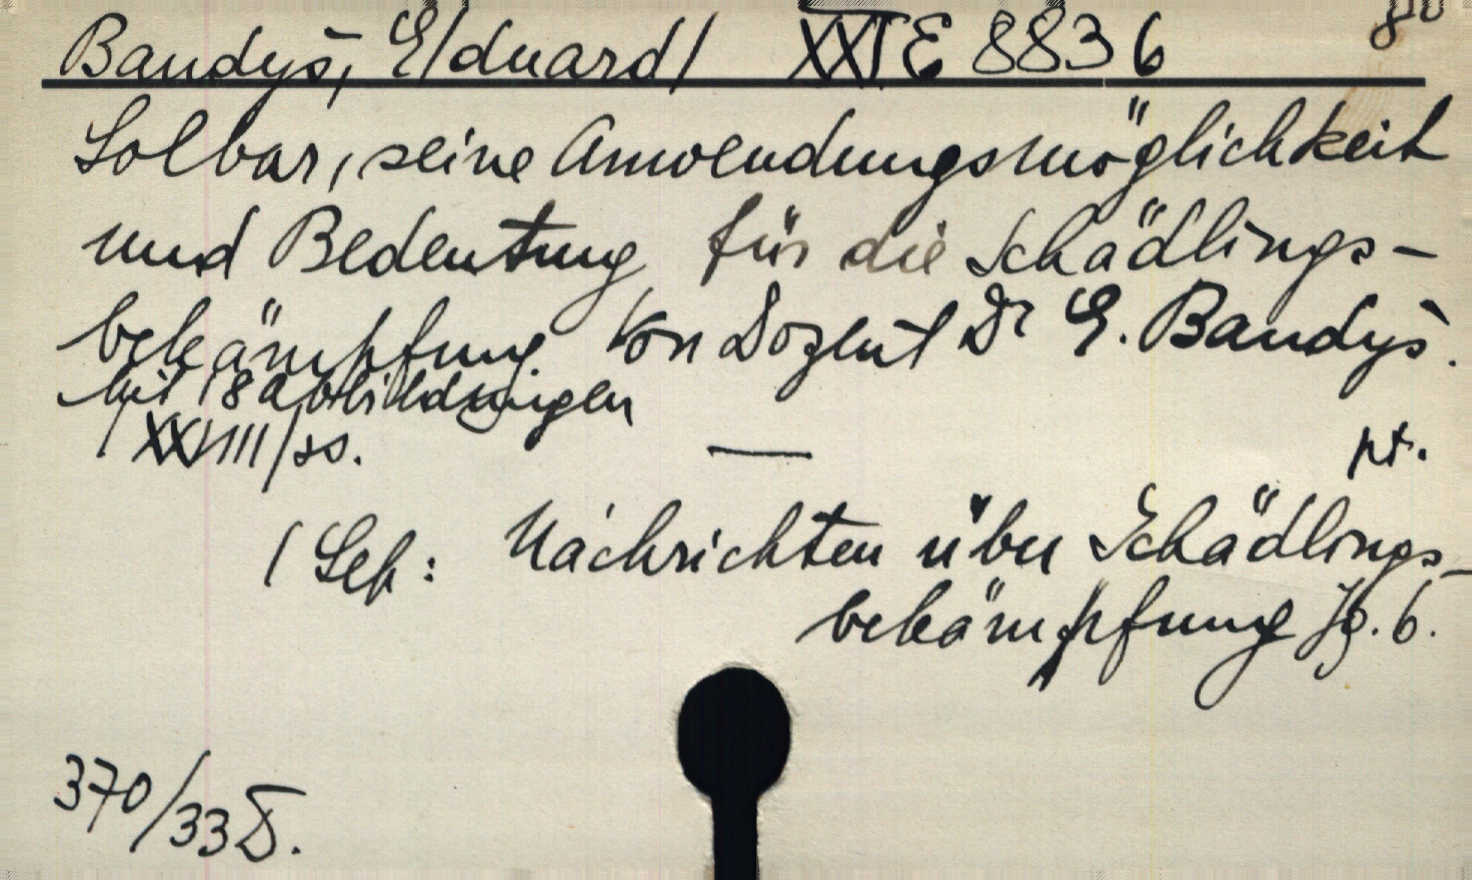 Baudyš, E/duard/ XXI E 8836 80
Solbar, seine Anwendungsmöglichkeit
und Bedeutung für die Schädlings-
bekämpfung Von Dozent Dr E. Baudyš.
Mit 18 Abbildungen
—
nt.
/ Sep: Nachrichten über Schädlings-
bekämpfung Jg. 6.
370/33 D.